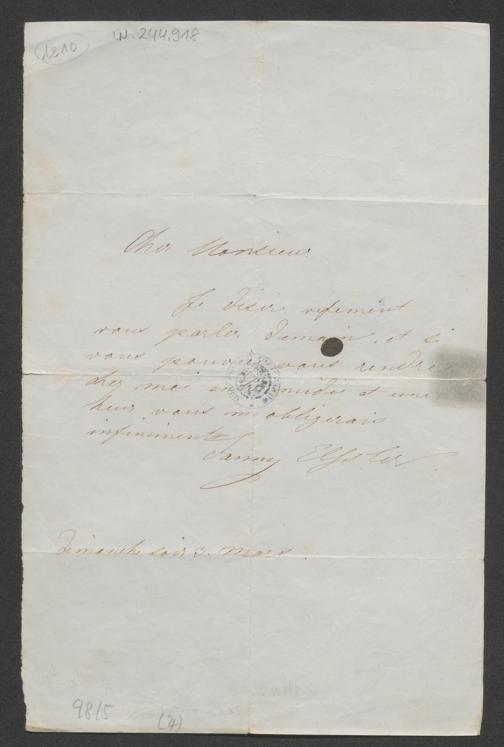 1210
I.N. 244.918
Cher Monsieur
Je désire vifement
vous parler demain, et si
vous pouvez vous rendre
cher moi midi et une
heur vous m'obligerais
infiniments
Fanny Elssler
Dimanche soir 3. Mars.
98/5
(4)